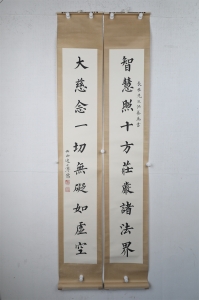 智慧照十方莊嚴諸法界
大慈念一切無礙如虛空